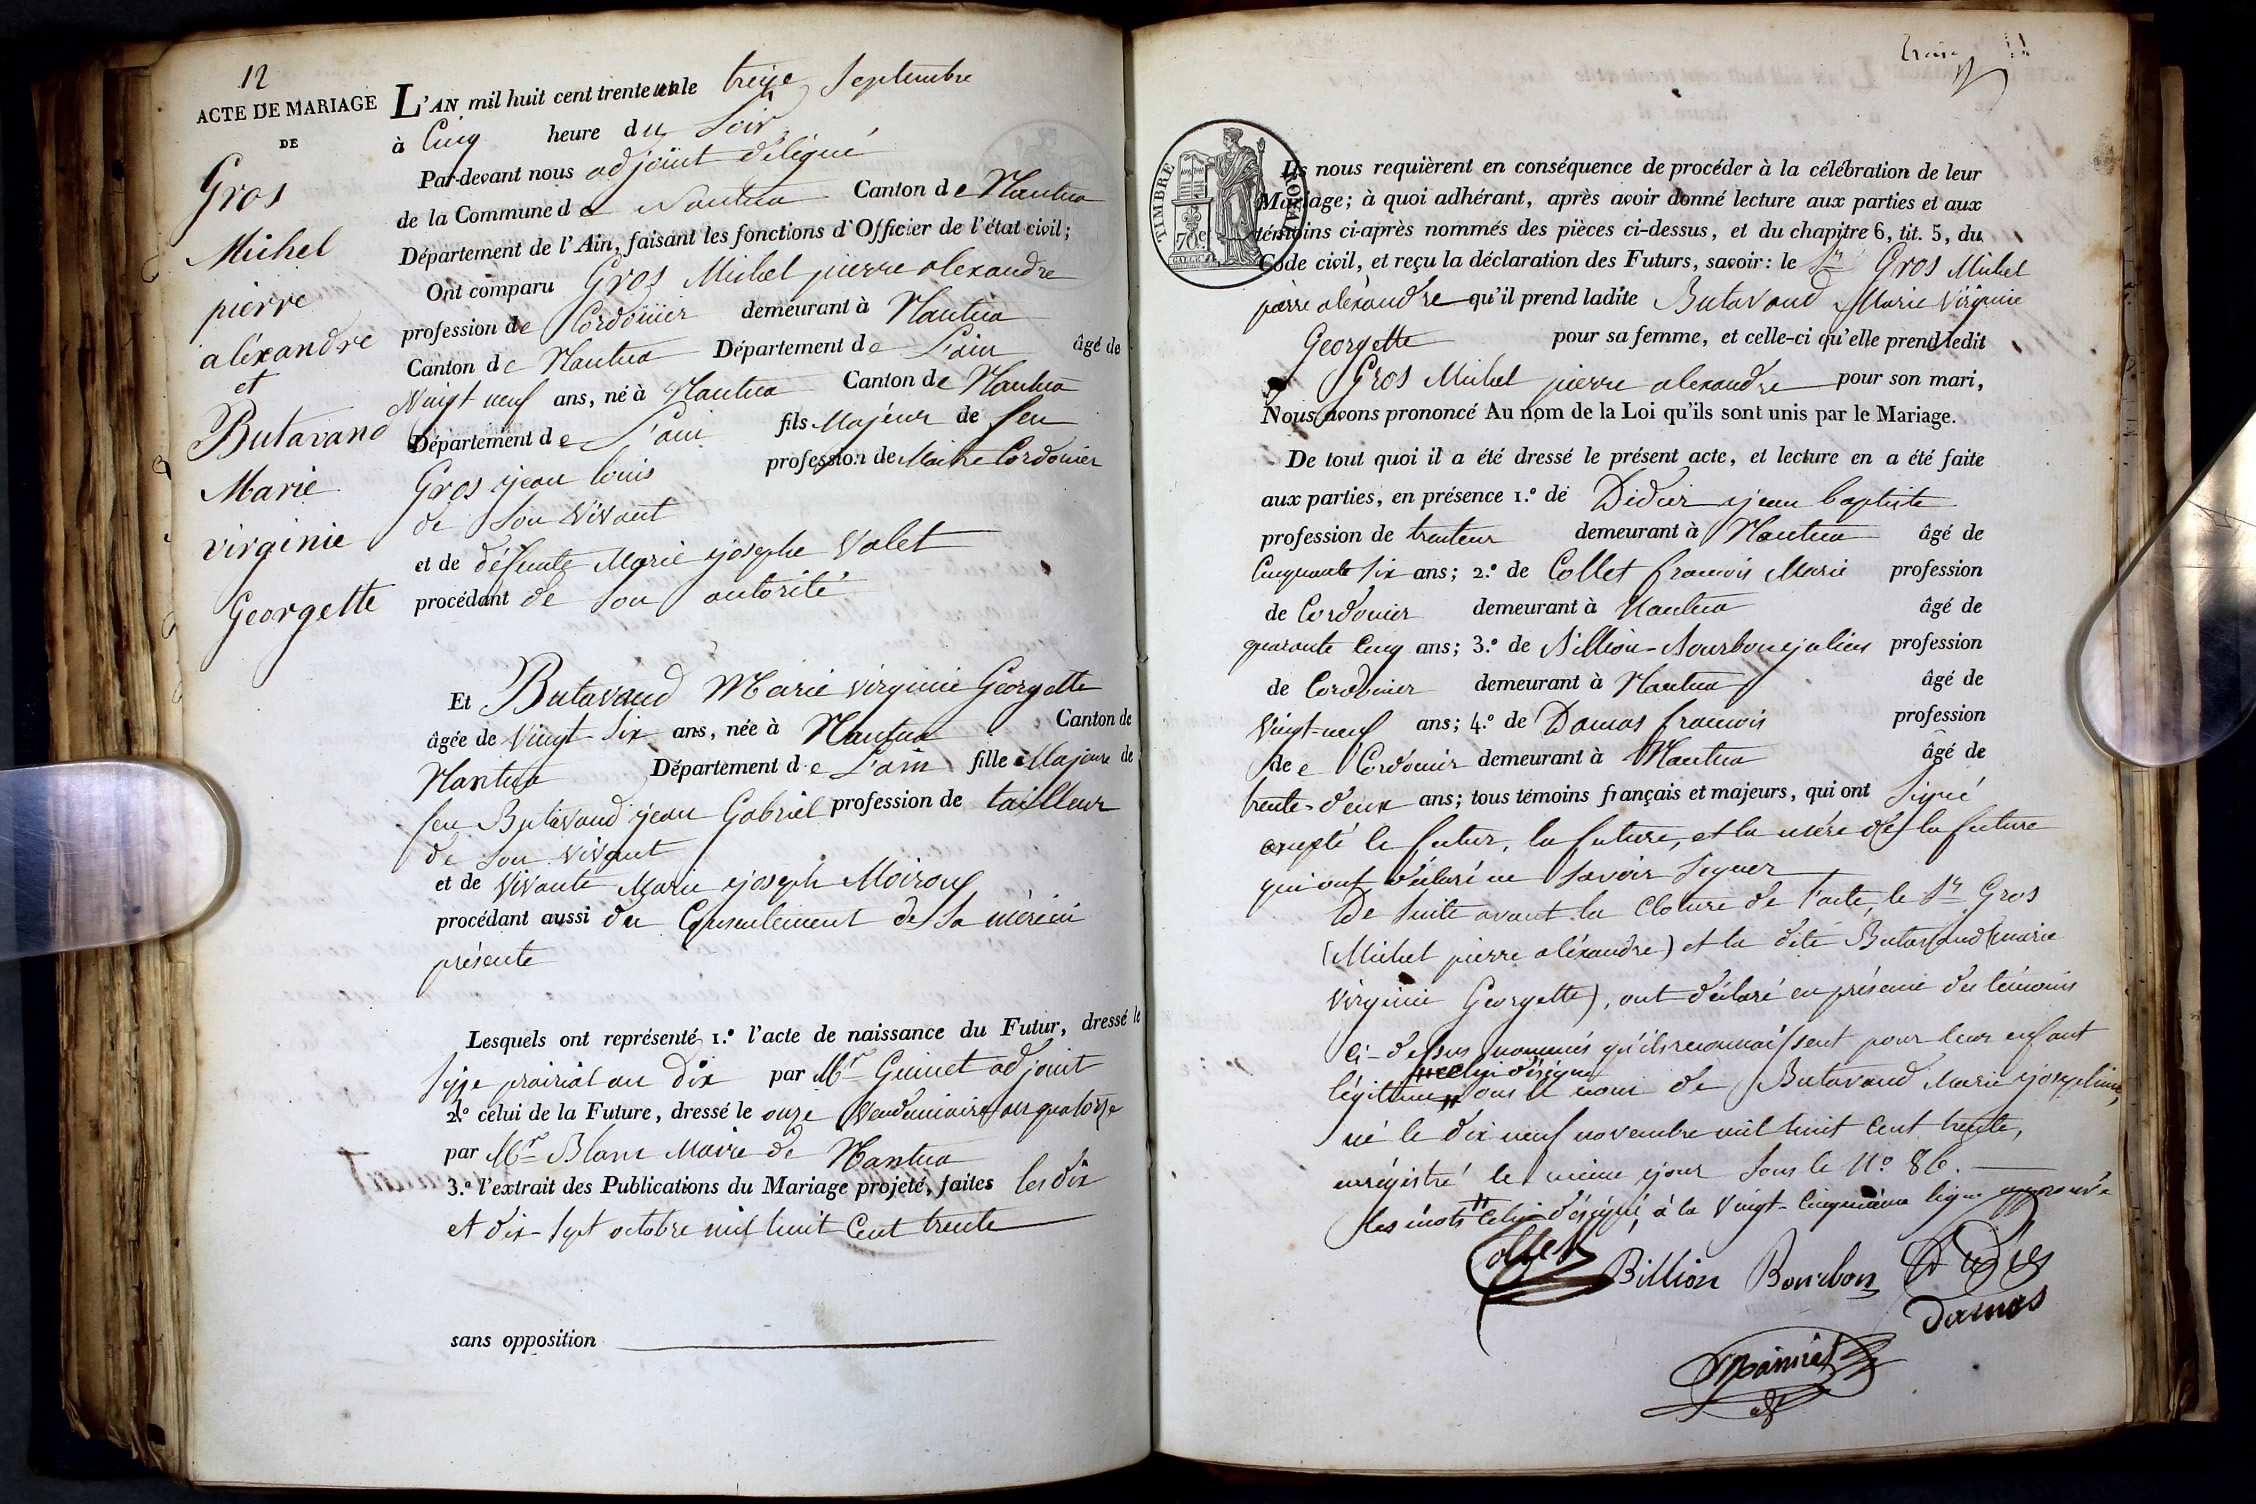 12
ACTE DE MARIAGE
DE
Gros
Michel
pierre
aléxandre
et
Butavand
Marie
virginie
Georgette
L'AN mil huit cent trente un le treize Septembre
à Cinq heure du Soir
Par-devant nous adjoint délégué
de la Commune de Nantua Canton de Nantua
Département de l'Ain, faisant les fonctions d'Officier de l'état civil;
Ont comparu Gros Michel pierre alexandre
profession de Cordonier demeurant à Nantua
Canton de Nantua Département de L'ain âgé de
Vingt neuf ans, né à Nantua Canton de Nantua
Département de L'ain fils Majeur de feu
Gros jean louis profession de Maitre Cordonier
de Son Vivant
et de défunte Marie josephe Valet
procédant de Son autorité
Et Butavaud Marie virginie Georgette
âgée de Vingt Six ans, née à Nantua Canton de
Nantua Département de L'ain fille Majeure de
feu Butavaud jean Gabriel profession de tailleur
de Son vivant
et de Vivante Marie joseph Moiroux
procédant aussi du Consentement de Sa mère ici
présente
Lesquels ont représenté 1.º l'acte de naissance du Futur, dressé le
Seize prairial an Dix par Mr Guinet adjoint
2.º celui de la Future, dressé le onze Vendemiaire an quatorze
par Mr Blanc Maire de Nantua
3.º l'extrait des Publications du Mariage projeté, faites les dix
et dix-Sept octobre mil huit Cent trente
sans opposition
Ils nous requièrent en conséquence de procéder à la célébration de leur
Mariage; à quoi adhérant, après avoir donné lecture aux parties et aux
témoins ci-après nommés des pièces ci-dessus, et du chapitre 6, tit. 5, du
Code civil, et reçu la déclaration des Futurs, savoir: le Sr Gros Michel
pierre aléxandre qu'il prend ladite Butavand Marie Virginie
Georgette pour sa femme, et celle-ci qu'elle prend ledit
Gros Michel pierre alexandre pour son mari,
Nous avons prononcé Au nom de la Loi qu'ils sont unis par le Mariage.
De tout quoi il a été dressé le présent acte, et lecture en a été faite
aux parties, en présence 1.º de Didier jean baptiste
profession de traiteur demeurant à Nantua âgé de
Cinquante Six ans; 2.º de Collet francois Marie profession
de Cordonier demeurant à Nantua âgé de
quarante Cinq ans; 3.º de Billion-Bourbon julien profession
de Cordonier demeurant à Nantua âgé de
Vingt-neuf ans; 4.º de Damas francois profession
de Cordonier demeurant à Nantua âgé de
trente-deux ans; tous témoins français et majeurs, qui ont Signé
excepté le futur, la future, et la mère de la future
qui ont déclaré ne Savoir Signer
De Suite avant la Cloture de l'acte, le Sr Gros
(Michel pierre aléxandre) et la dite Butavaud (marie
Virginie Georgette), ont déclaré en présence des témoins
Ci-dessus nommés qu'ils reconnaissent pour leur enfant
celui désigné
légitime Sous le nom de Butavand Marie josephine,
né le dix neuf novembre mil huit Cent trente,
enrégistré le même jour Sous le Nº 86.
les mots celui désigné, à la Vingt-Cinquième ligne approuvés
Collet Billion Bourbon Didier
Damas
TIMBRE ROYAL
70c